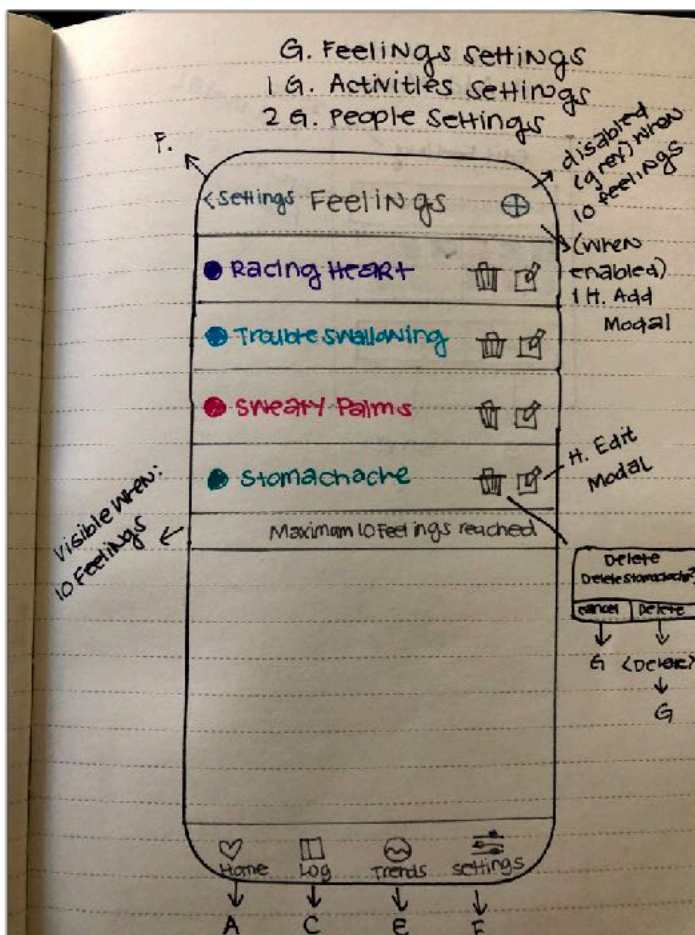 G. Feelings Settings
1 G. Activities Settings
2 G. People Settings
F.
disabled
(grey) when
10 feelings
< Settings Feelings
(when
enabled)
1 H. Add
Modal
Racing Heart
Trouble Swallowing
Sweaty Palms
Stomachache
H. Edit
Modal
Visible when:
10 Feelings
Maximum 10 Feelings reached
Delete
Delete Stomachache?
Cancel Delete
G (Delete)
G
Home Log Trends Settings
A C E F